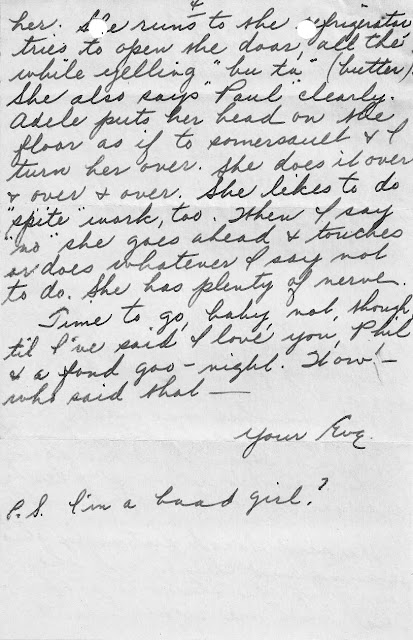 4
her. She runs to the refrigerator
tries to open the door, all the
while yelling "bu ta" (butter)
She also says "Paul" clearly.
Adele puts her head on the
floor as if to somersault & I
turn her over. She does it over
& over & over. She likes to do
"spite" work, too. When I say
"no" she goes ahead & touches
or does whatever I say not
to do. She has plenty of nerve.
Time to go, baby, not, though,
til I've said I love you, Phil
& a fond goo-night. Now -
who said that —
Your Eve.
P.S. I'm a baad girl?